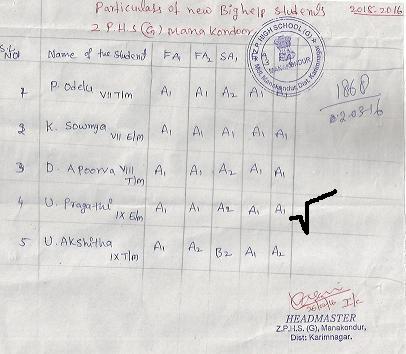 Particulars of new Bighelp students 2015-2016
Z P.H.S (G) Manakondoor
Z.P. HIGH SCHOOL (G)
MANAKONDUR
Dist. Karimnagar.
S.L NO Name of the student FA1 FA2 SA1
1 P. Odelu VII T/m A1 A1 A2 A1 A1
2 K. Sowmya VII E/m A1 A1 A1 A1 A1
3 D. Apoorva VIII T/m A1 A1 A1 A1 A1
4 U. Pragathi IX E/m A1 A1 A2 A1 A1
5 U. Akshitha IX T/m A1 A2 B2 A1 A2
1868
02-03-16
I/c
HEADMASTER
Z.P.H.S. (G), Manakondur,
Dist: Karimnagar.